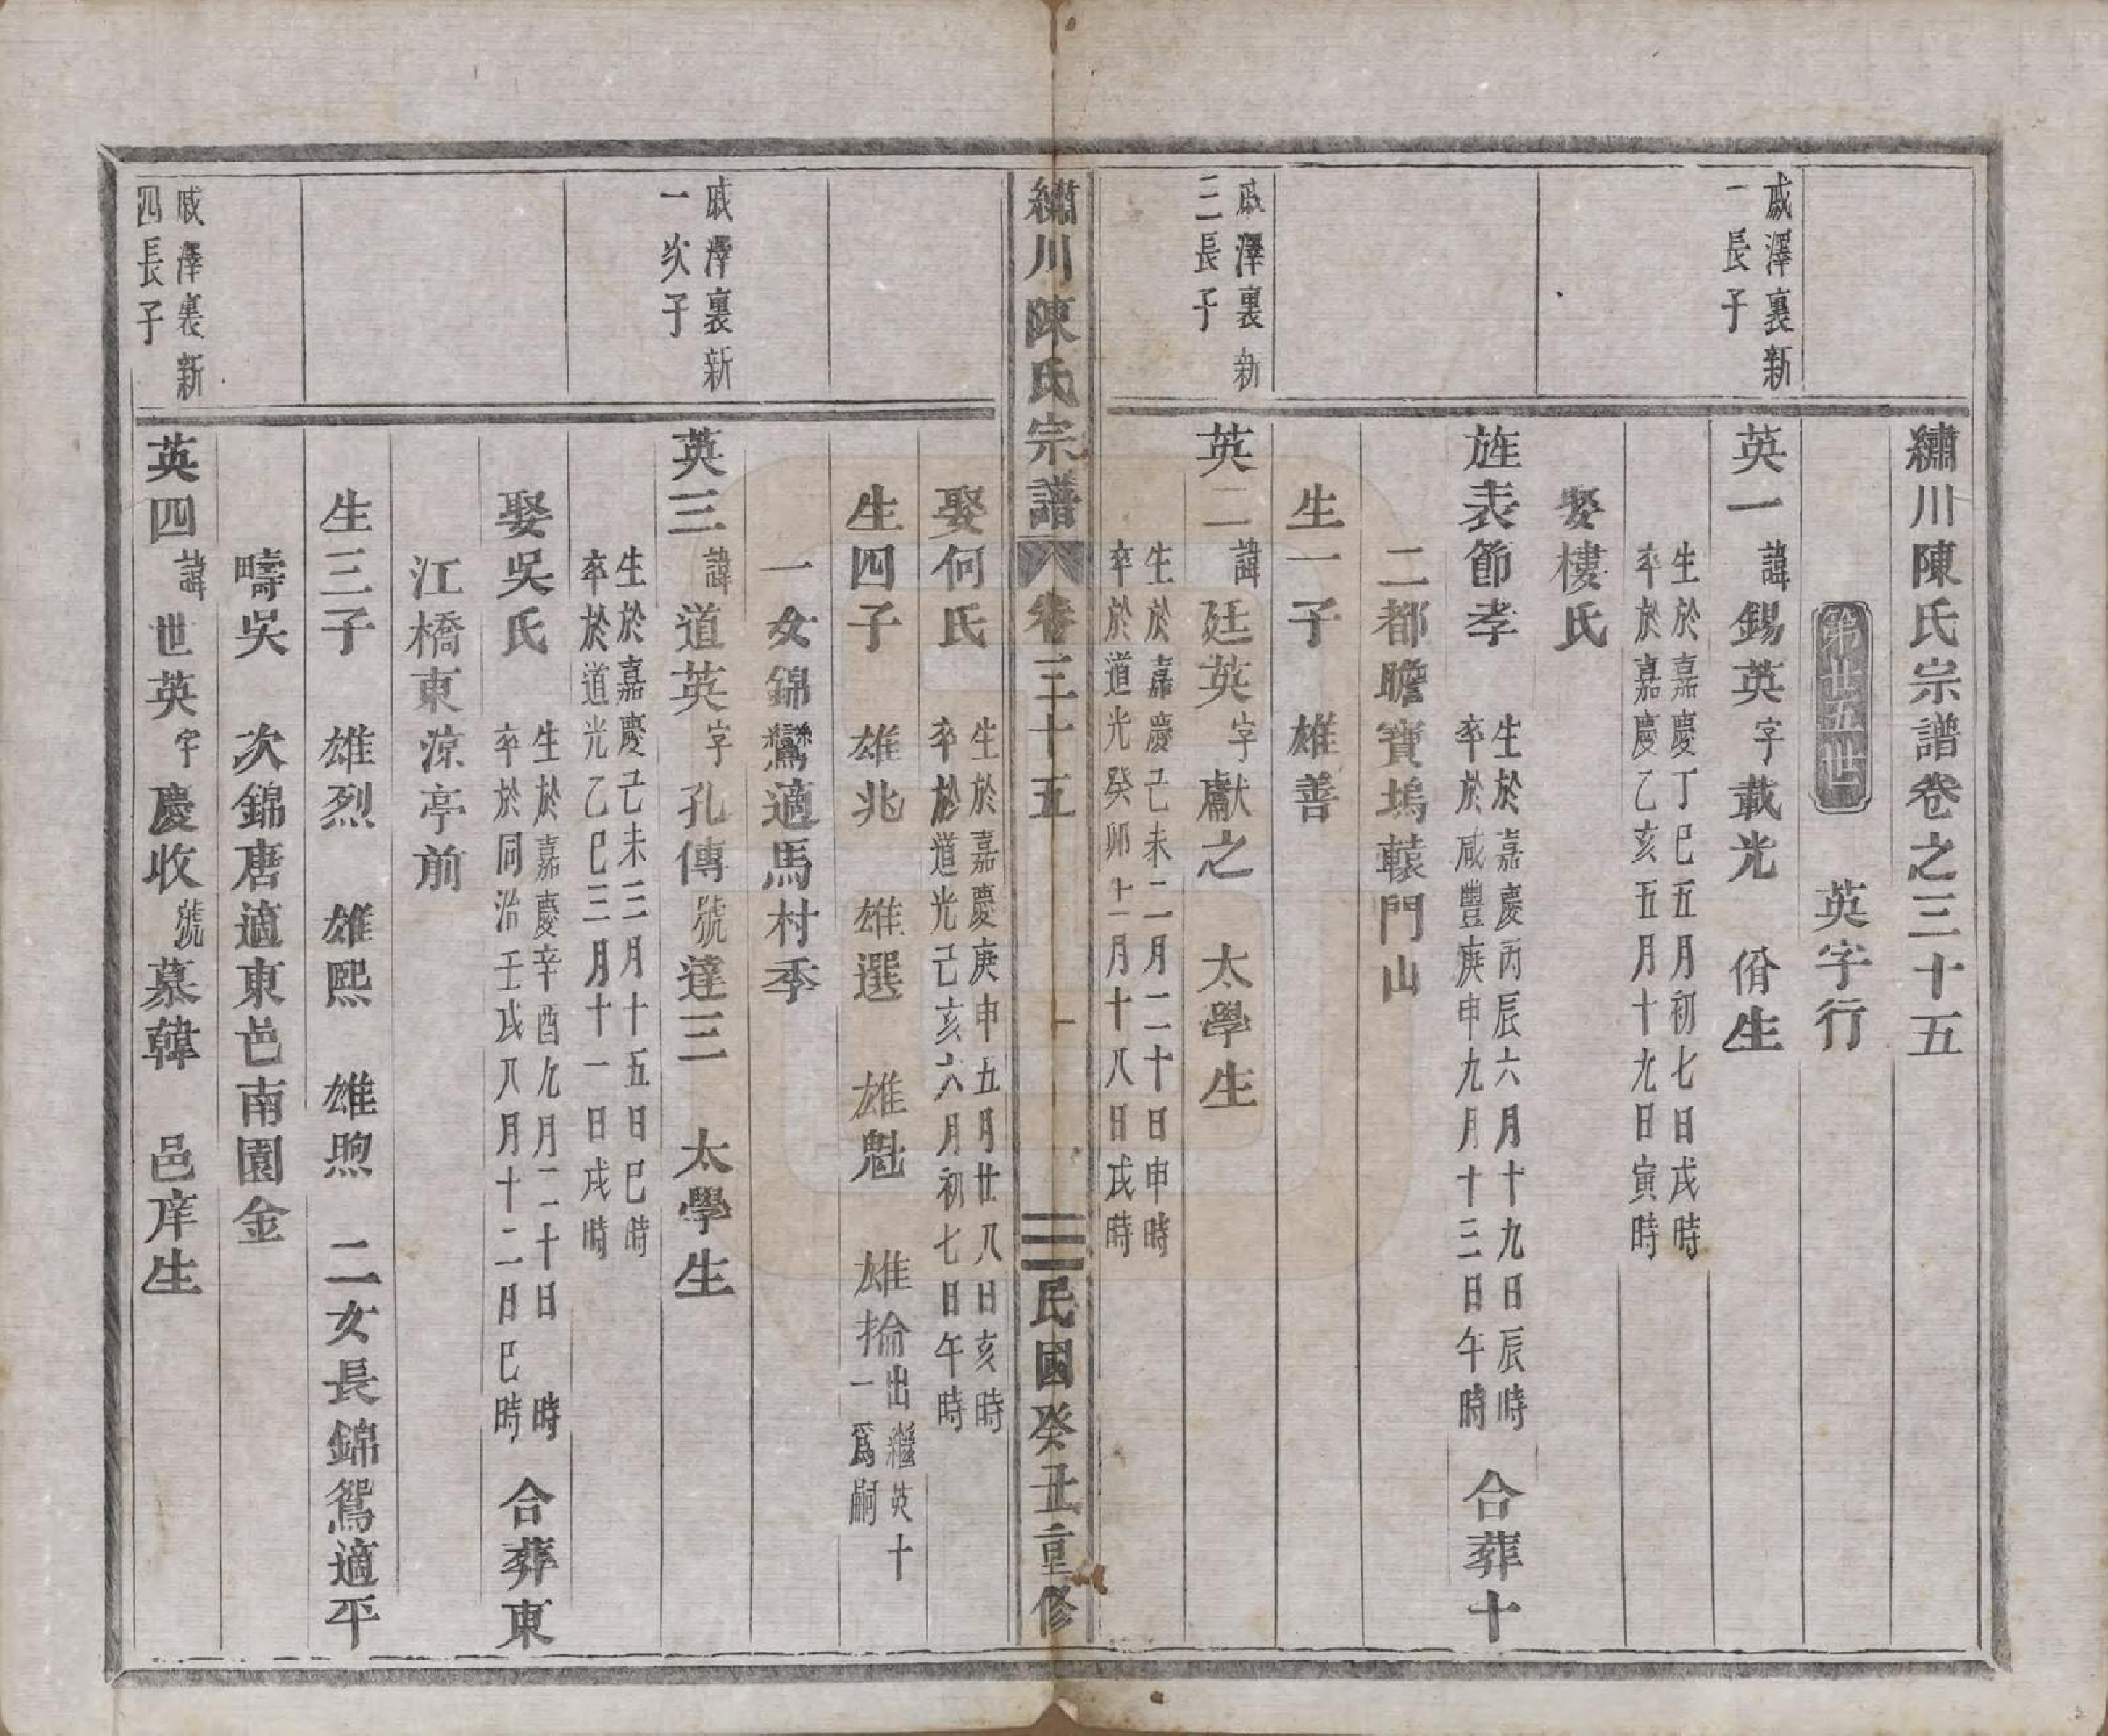 繡川陳氏宗譜卷之三十五
第廿五世
英字行
戚澤裏新
一長子
英一
諱
錫英
字
載光
脩生
生於嘉慶丁巳五月初七日戌時
卒於嘉慶乙亥五月十九日寅時
娶樓氏
旌表節孝
生於嘉慶丙辰六月十九日辰時
卒於咸豐庚申九月十三日午時
合葬十
二都瞻寶塢轅門山
生一子 雄善
戚澤裏新
三長子
英二
諱
廷英
字
獻之
太學生
生於嘉慶己未二月二十日申時
卒於道光癸卯十二月十八日戌時
繡川陳氏宗譜
卷三十五
一
民國癸丑重修
娶何氏
生於嘉慶庚申五月廿八日亥時
卒於道光己亥六月初七日午時
生四子 雄兆 雄選 雄魁 雄掄
出繼英十
一爲嗣
一女錦鸞適馬村季
戚澤裏新
一次子
英三
諱
道英
字
孔傳
號
達三
太學生
生於嘉慶己未三月十五日巳時
卒於道光乙巳三月十一日戌時
娶吳氏
生於嘉慶辛酉九月二十日 時
卒於同治壬戌八月十二日巳時
合葬東
江橋東涼亭前
生三子 雄烈 雄熙 雄煦 二女長錦鴛適平
疇吳 次錦唐適東邑南園金
戚澤裏新
四長子
英四
諱
世英
字
慶收
號
慕韓
邑庠生